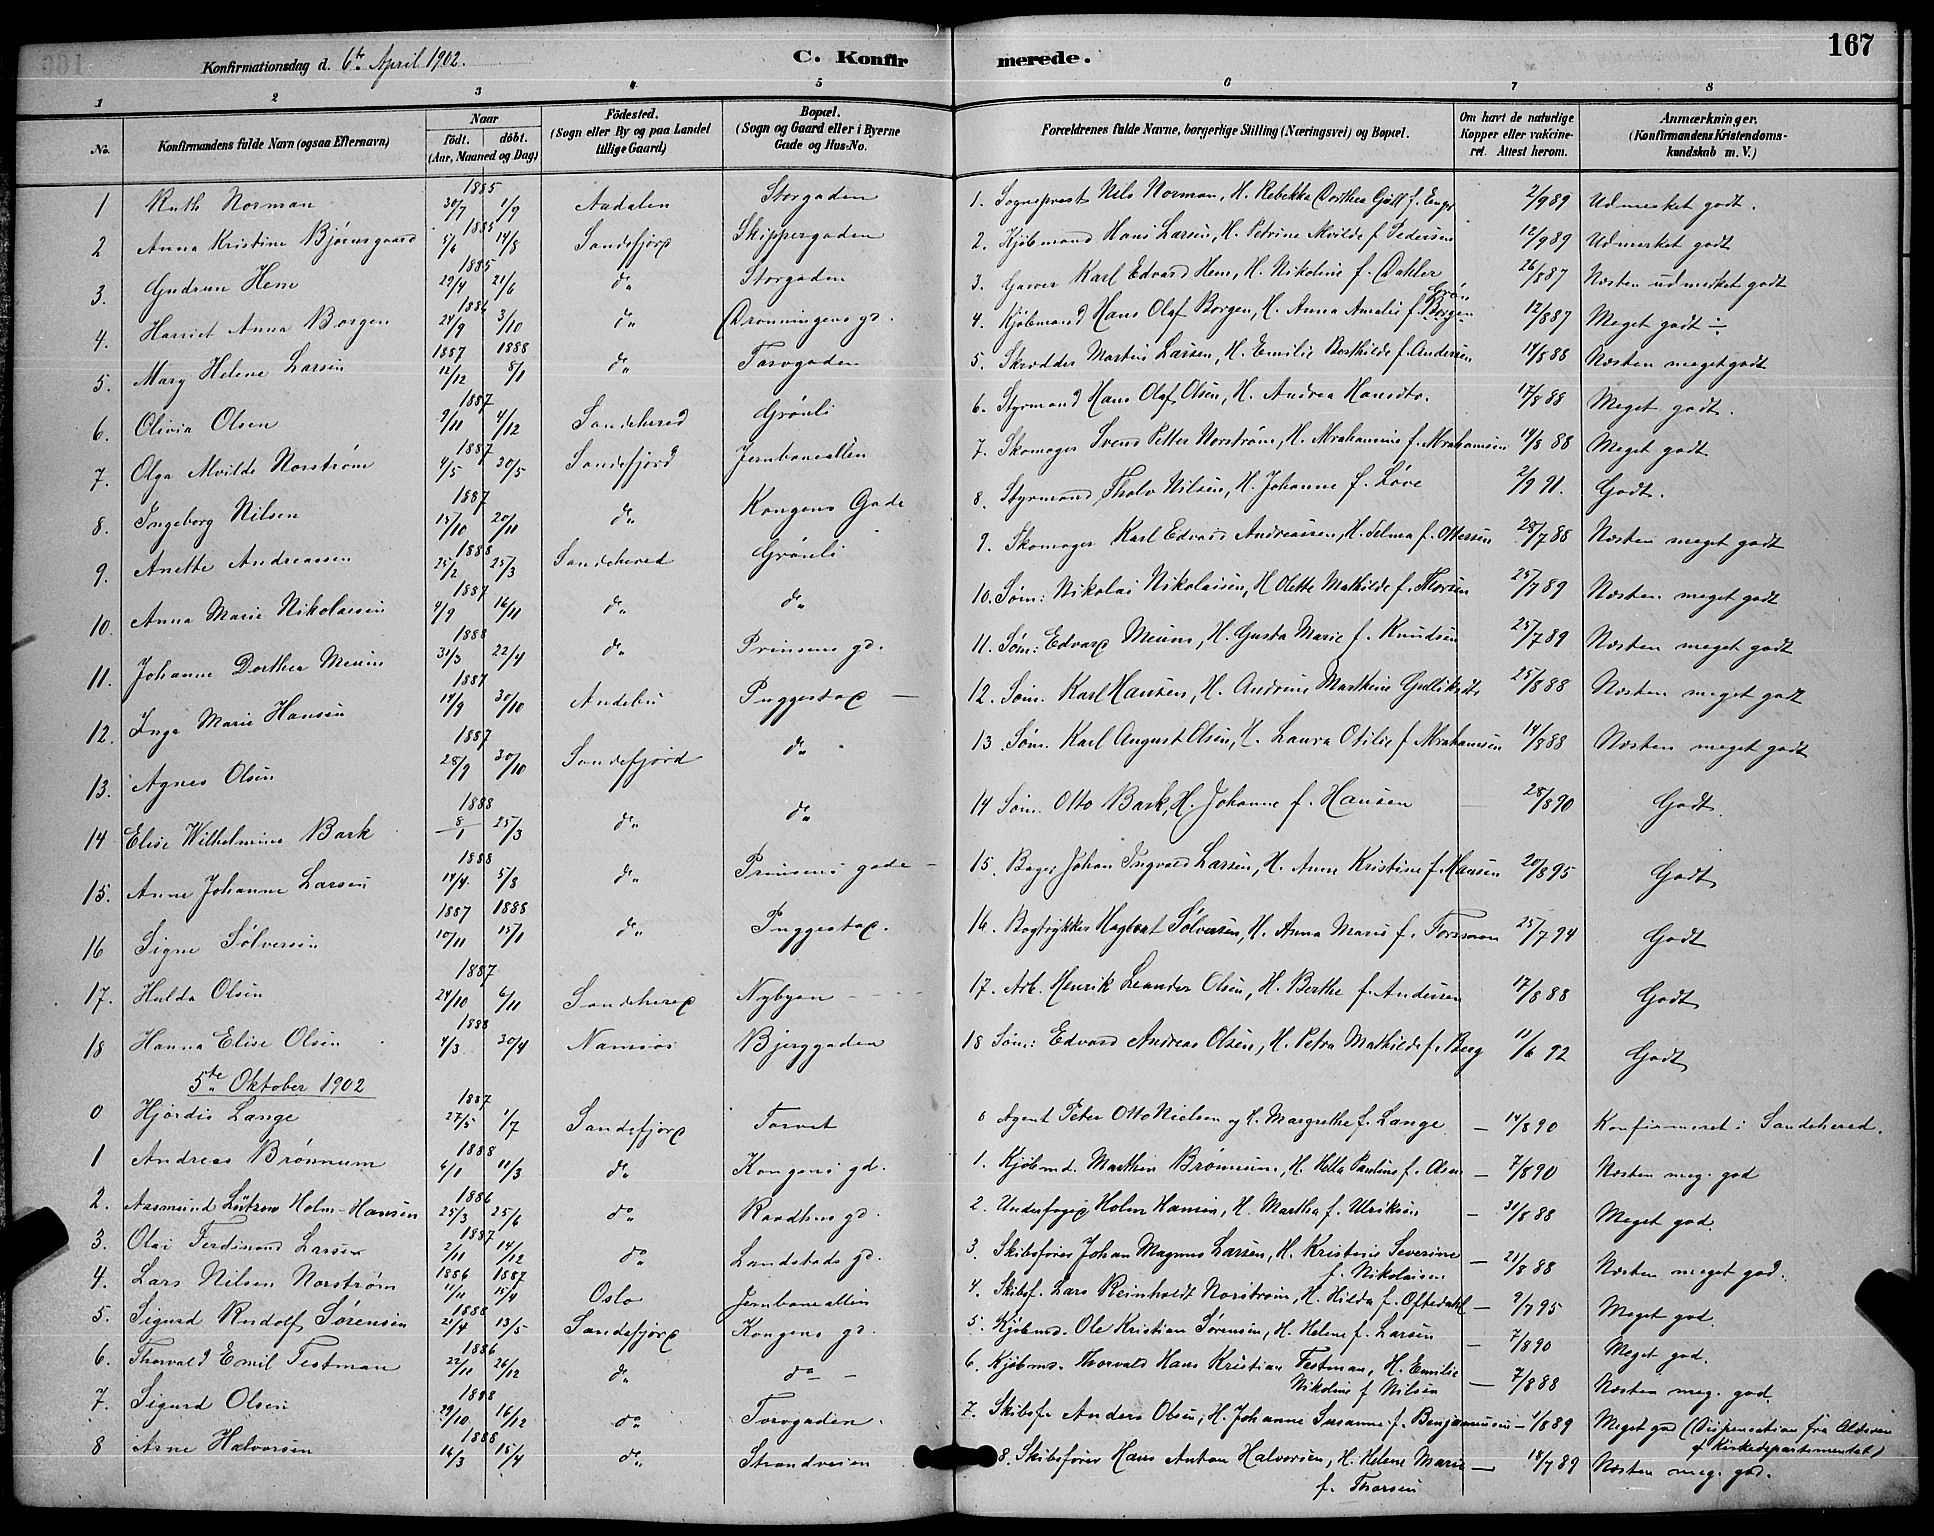 Konfirmationsdag d. 6te April 1902. C. Konfirmerede. 167
1 2 3 4 5 6 7 8
No. Konfirmandens fulde Navn (ogsaa Efternavn) Naar födt. döbt. (Aar, Maaned og Dag) Födested. (Sogn eller By og paa Landet tillige Gaard) Bopæl. (Sogn og Gaard eller i Byerne Gade og Hus-No. Forældrenes fulde Navne, borgerlige Stilling (Næringsvei) og Bopæl. Om havt de naturlige Kopper eller vakcineret. Attest herom. Anmærkninger. (Konfirmandens Kristendomskundskab m. V.)
1 Ruth Norman 1885 30/7 1/9 Aadalen Storgaden 1. Sogneprest Nils Norman, H. Rebekka Dorthea 2/9 89 Udmerket godt.
2 Anna Kristine Bjørnsgaard 1885 14/8 Sandefjord Skippergaden 2. Kjøbmand Hans Larsen, H. Petrine Alvilde f. Pedersen 12/9 89 Udmerket godt
3. Gudrun Hem 1885 29/4 21/6 do Storgaden 3. Garver Karl Edvard Hem, H. Nikoline f. Dahler 26/8 87 Næsten udmerket godt
4. Harriet Anna Borgen 1886 24/9 3/10 do Dronningens gd. 4. Kjøbmand Hans Olaf Borgen, H. Anna Amalie f. 12/8 87 Meget godt ÷
5. Mary Helene Larsen 1887 12/12 1888 8/1 do Torvgaden 5. Skrædder Martin Larsen, H. Emilie Bothilde f. Andersen 14/8 88 Næsten meget godt
6. Olivia Olsen 1887 9/11 4/12 Sandehered Grønli 6. Styrmand Hans Olaf Olsen, H. Andrea Hansdtr. 17/8 88 Meget godt.
7. Olga Alvilde Norstrøm 1887 4/5 30/5 Sandefjord Jernbanealléen 7. Skomager Svend Petter Norstrøm, H. Abrahamine f. Abrahamsen 14/8 88 Meget godt.
8. Ingeborg Nilsen 1887 15/10 20/11 do Kongens Gade 8. Styrmand Tholv Nilsen, H. Johanne f. Løve 2/9 91. Godt.
9. Anette Andreassen 1888 25/2 25/3 Sandehered Grønli 9. Skomager Karl Edvard Andreassen, H. Selma f. Ottersen 28/7 88 Næsten meget godt
10. Anna Marie Nikolaisen 1887 4/9 16/11 do do 10. Søm: Nikolai Nikolaisen, H. Olette Mathilde f. Thorsen 25/7 89 Næsten meget godt
11. Johanne Dorthea Meum 1888 31/3 22/4 do Prinsens gd. 11. Søm: Edvard Meum, H. Gusta Marie f. Knudsen 25/7 89 Næsten meget godt
12. Inga Marie Hansen 1887 14/9 30/10 Andebu Puggestad 12. Søm. Karl Hansen, H. Andrine Marthine Gulliksdtr 25/8 88 Næsten meget godt
13. Agnes Olsen 1887 28/9 30/10 Sandefjord do 13. Søm. Karl August Olsen, H. Laura Otilie f. Abrahamsen 14/8 88 Næsten meget godt
14 Elise Wilhelmine Bark 1888 8/1 25/3 do do 14 Søm. Otto Bark, H. Johanne f. Hansen 28/8 90 Godt.
15. Anne Johanne Larsen 1888 14/4 5/8 do Prinsens gade 15. Bager Johan Ingvald Larsen, H. Anne Kristine f. Hansen 20/8 95 Godt
16 Signe Sølversen 1887 10/11 1888 15/1 do Puggestad. 16. Bogtrykker Hagbart Sølversen, H. Anna Marie f. Forsman 25/7 94 Godt
17. Hulda Olsen 1887 24/10 6/11 Sandehered Nybyen 17. Arb. Henrik Leander Olsen, H. Berthe f. Andersen 17/8 88 Godt
18 Hanna Elise Olsen 1888 4/3 30/4 Namsos Bjerggaden 18 Søm: Edvard Andreas Olsen, H. Petra Mathilde f. Berg 11/6 92 Godt
5te Oktober 1902
0 Hjørdis Lange 1887 27/5 1/7 Sandefjord Torvet 0 Agent Peter Otto Nielsen og H. Margrethe f. Lange — 14/8 90 Konfirmeret i Sandehered.
1 Andreas Brønnum 1888 6/1 11/3 do Kongens gd. 1. Kjøbmd. Marthin Brønnum, H. Hella Pauline f. Olsen — 7/8 90 Næsten meg. god
2. Aasmund Lützow Holm-Hansen 1886 25/3 25/6 do Raadhus gd. 2. Underfoged Holm Hansen, H. Martha f. Ulriksen — 31/8 88 Meget god.
3. Olai Ferdinand Larsen 1887 2/11 14/12 do Landstads gd. 3. Skibsfører Johan Magnus Larsen, H. Kristine Severine f. Nikolaisen — 21/8 88 Næsten meget god.
4. Lars Nilsen Norstrøm 1886 11/11 1887 15/4 Oslo Jernbanealléen 4. Skibsf. Lars Reinholdt Norstrøm, H. Hilda f. Oftedahl — 9/7 95 Meget god.
5. Sigurd Rudolf Sørensen 1888 21/4 13/5 Sandefjord Kongens gd. 5. Kjøbmd. Ole Kristian Sørensen, H. Helene f. Larsen — 7/8 90 Meget god.
6. Thorvald Emil Testman 1886 22/11 26/12 do do 6. Kjøbmd. Thorvald Hans Kristian Testman, H. Emilie Nikoline f. Nilsen — 7/8 88 Næsten meg. god.
7. Sigurd Olsen 1888 29/10 16/12 do Torvgaden. 7. Skibsfr Anders Olsen, H. Johanne Susanne f. Benjaminsen — 1/8 89 Meget god (Dispensation fra Alderen f. Kirkedepartementet)
8 Arne Halvorsen 1888 16/3 15/4 do Strandveien 8. Skibsfører Hans Anton Halvorsen, H. Helene Marie f. Thorsen — 18/7 89 Næsten meg. god.